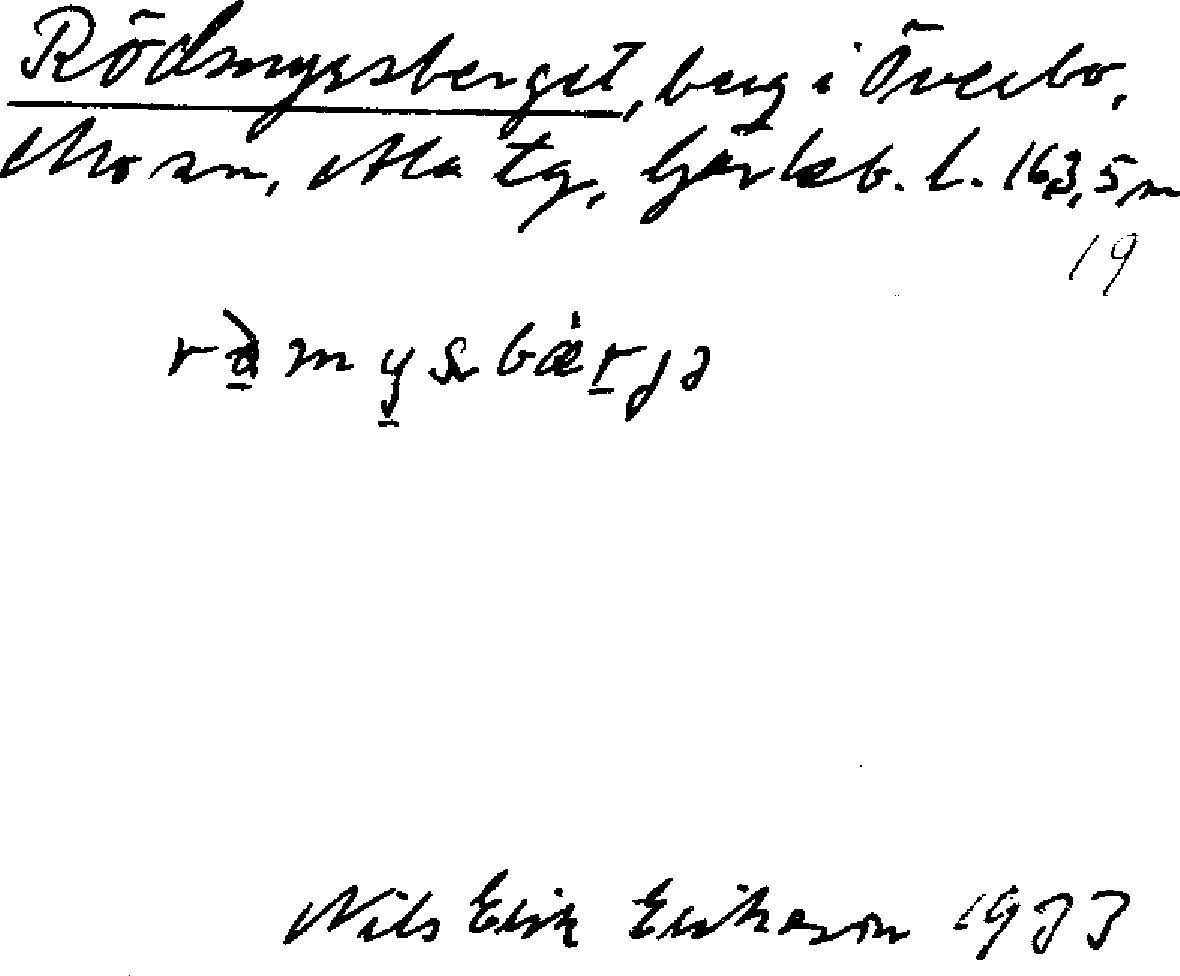 Rödmyrsberget, berg i Överbo,
Mo sn, Ala tg, Gävleb. l. 163,5 m
19
Nils Erik Erikson 1933